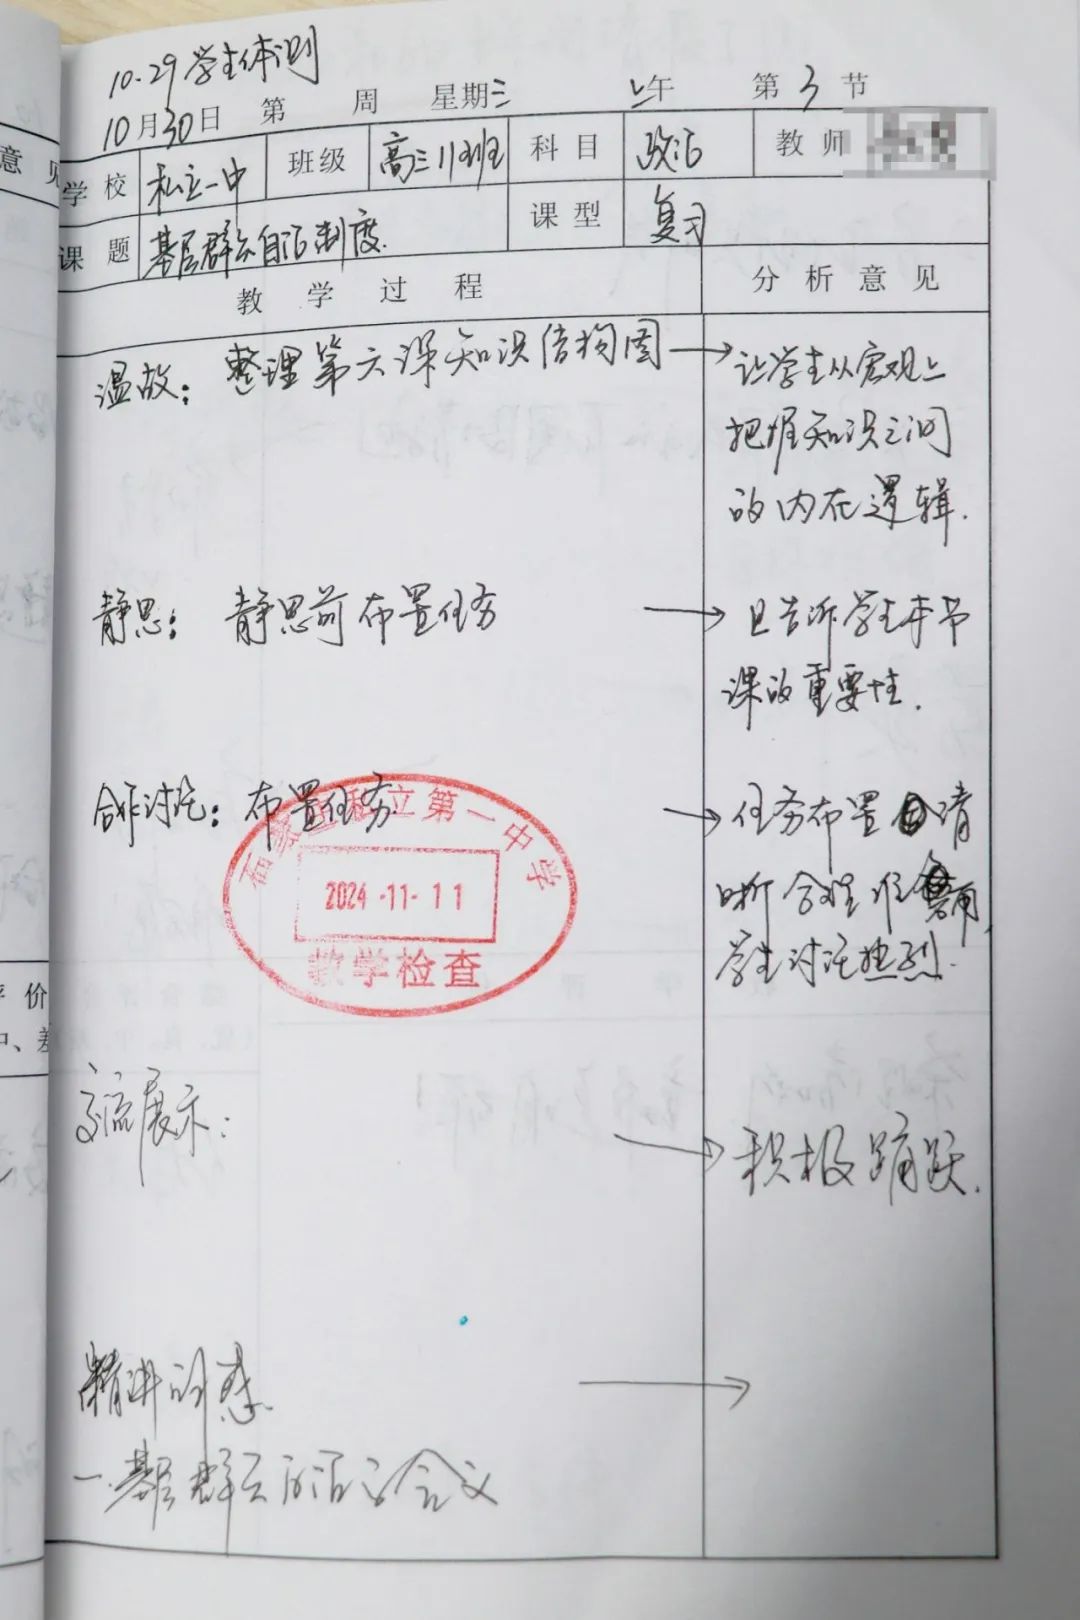 10.29学生体测
10月30日 第 周 星期三 上午 第3节
学校 私立一中 班级 高三11班 科目 政治 教师
课题 基层群众自治制度 课型 复习
教学过程 分析意见
温故：整理第六课知识结构图 → 让学生从宏观上
把握知识之间
的内在逻辑.
静思：静思前布置任务 → 且告诉学生本节
课的重要性.
合作讨论：布置任务 → 任务布置 清
晰
学生讨论热烈.
私立第一中学
2024-11-11
教学检查
交流展示： → 积极踊跃.
精讲 惑 →
一.基层群众自治 含义
意见
评价